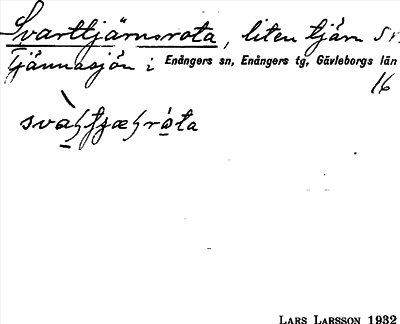 Svarttjärnsrota, liten tjärn
Tjännasjön i Enångers sn, Enångers tg, Gävleborgs län
16
LARS LARSSON 1932